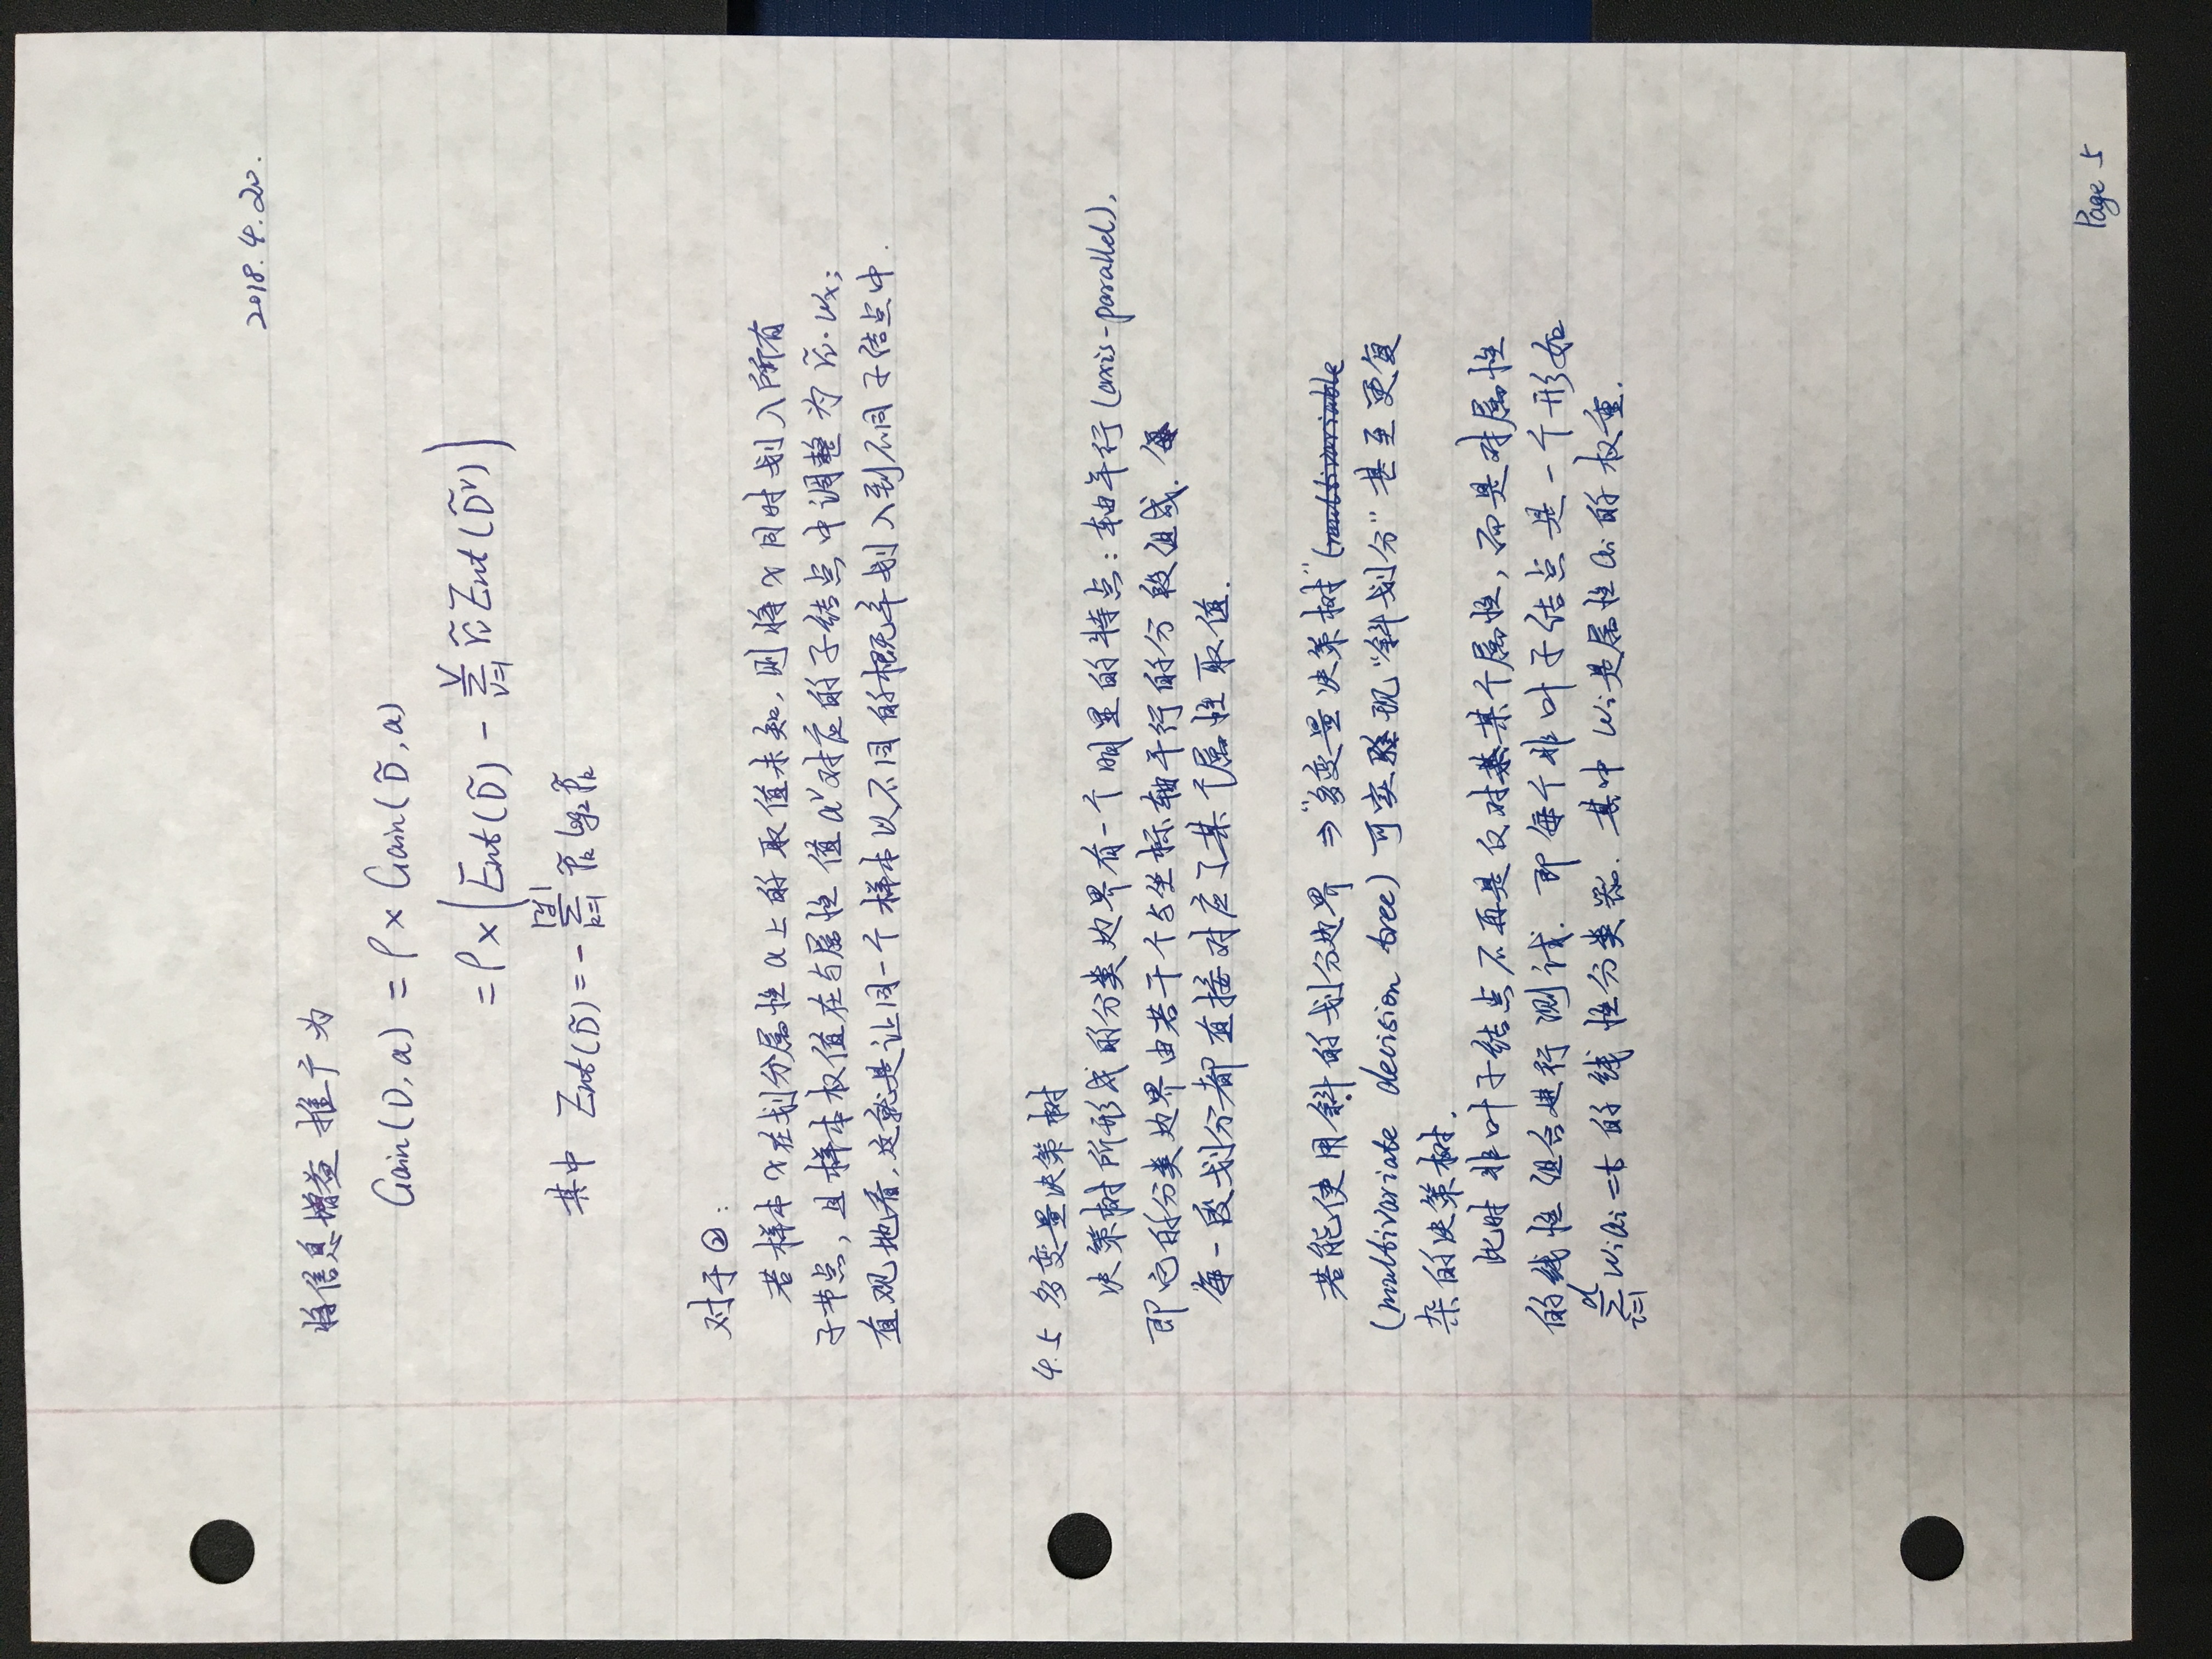 2018.4.20.
将信息增益推广为
Gain(D, a) = ρ × Gain(D̃, a)
= ρ × (Ent(D̃) - ∑_{v=1}^{V} r̃_v Ent(D̃^v))
其中 Ent(D̃) = - ∑_{k=1}^{|y|} p̃_k log_2 p̃_k
对于②:
若样本x在划分属性a上的取值未知,则将x同时划入所有
子节点,且样本权值在与属性值a^v对应的子结点中调整为r̃_v·w_x;
直观地看,这就是让同一个样本以不同的概率划入到不同子结点中.
4.5 多变量决策树
决策树所形成的分类边界有一个明显的特点:轴平行(axis-parallel),
即它的分类边界由若干个与坐标轴平行的分段组成.
每一段划分都直接对应了某个属性取值.
若能使用斜的划分边界 ⇒“多变量决策树”(multivariable
(multivariate decision tree)可实现“斜划分”甚至更复
杂的决策树.
此时非叶子结点不再是仅对某个属性,而是对属性
的线性组合进行测试. 即每个非叶子结点是一个形如
∑_{i=1}^{d} w_i a_i = t 的线性分类器. 其中w_i是属性a_i的权重.
Page 5